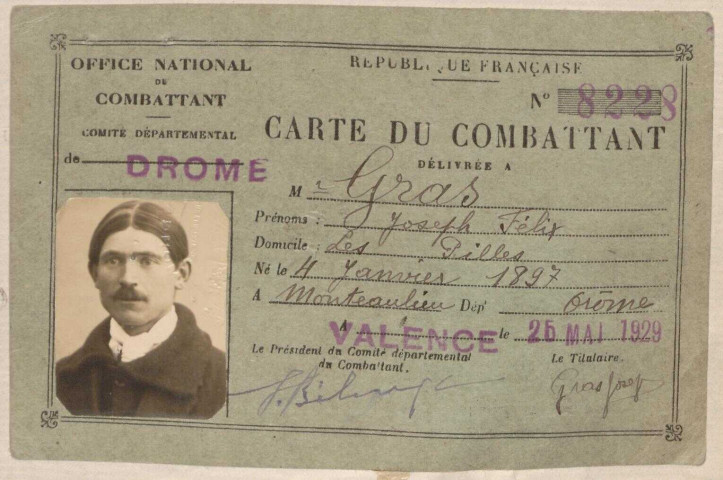 OFFICE NATIONAL
DU
COMBATTANT
COMITÉ DÉPARTEMENTAL
de DROME
RÉPUBLIQUE FRANÇAISE
N° 8228
CARTE DU COMBATTANT
DÉLIVRÉE A
M r Gras
Prénoms : Joseph Félix
Domicile : Les Pilles
Né le 4 Janvier 1897
A Monteaulieu Dép t Drôme
A VALENCE le 25 MAI 1929
Le Président du Comité départemental
du Combattant.
Le Titulaire.
Gras Josep